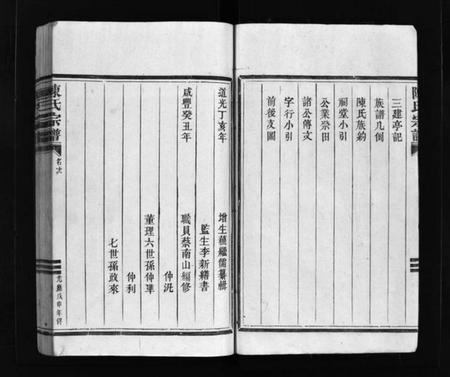 陳氏宗譜
三建亭記
族譜凡例
陳氏族約
祠堂小引
公業祭田
諸公傳文
字行小引
前後支圖
道光丁亥年
增生蘊繼儒纂輯
監生李新繕書
咸豐癸丑年
職員蔡南山編修
仲沅
董理六世孫仲單
仲利
七世孫政來
陳氏宗譜